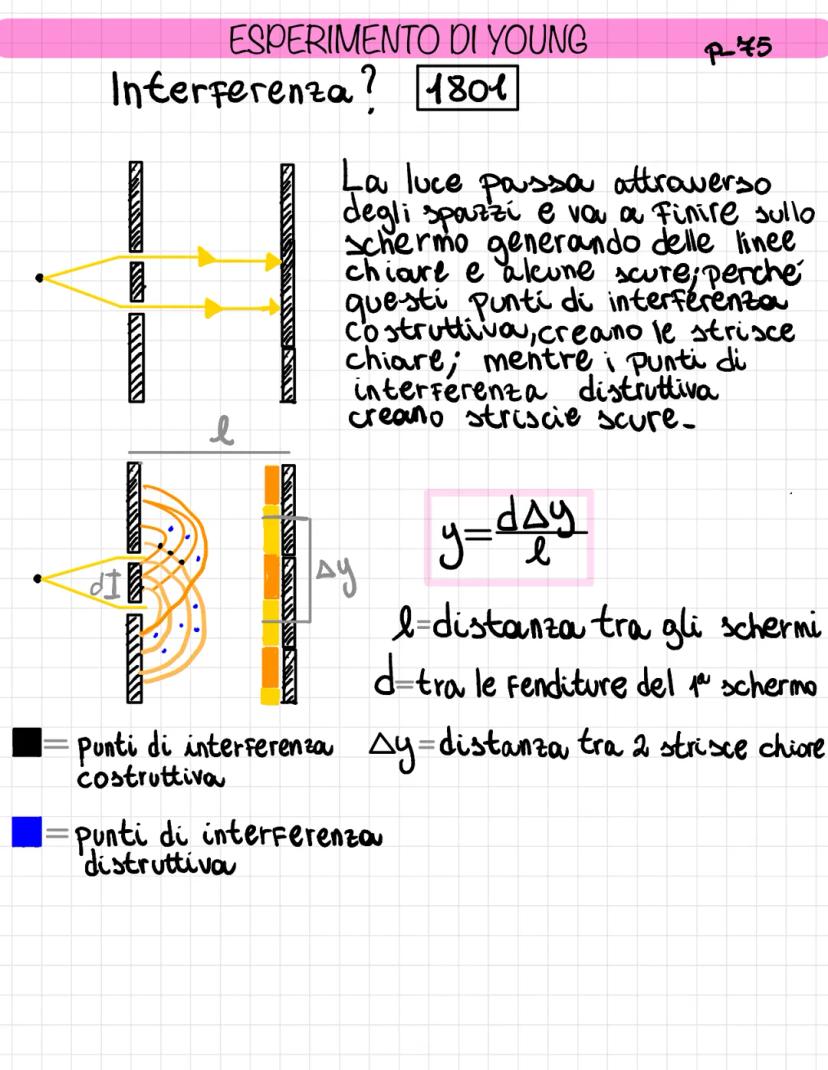 ESPERIMENTO DI YOUNG
p-75
Interferenza? 1801
La luce passa attraverso
degli spazzi e va a finire sullo
schermo generando delle linee
chiare e alcune scure; perché
questi punti di interferenza
costruttiva, creano le strisce
chiare; mentre i punti di
interferenza distruttiva
creano striscie scure.
l
y=dΔy/l
dI
Δy
l=distanza tra gli schermi
d=tra le fenditure del 1° schermo
= punti di interferenza
costruttiva
Δy=distanza tra 2 strisce chiare
= punti di interferenza
distruttiva